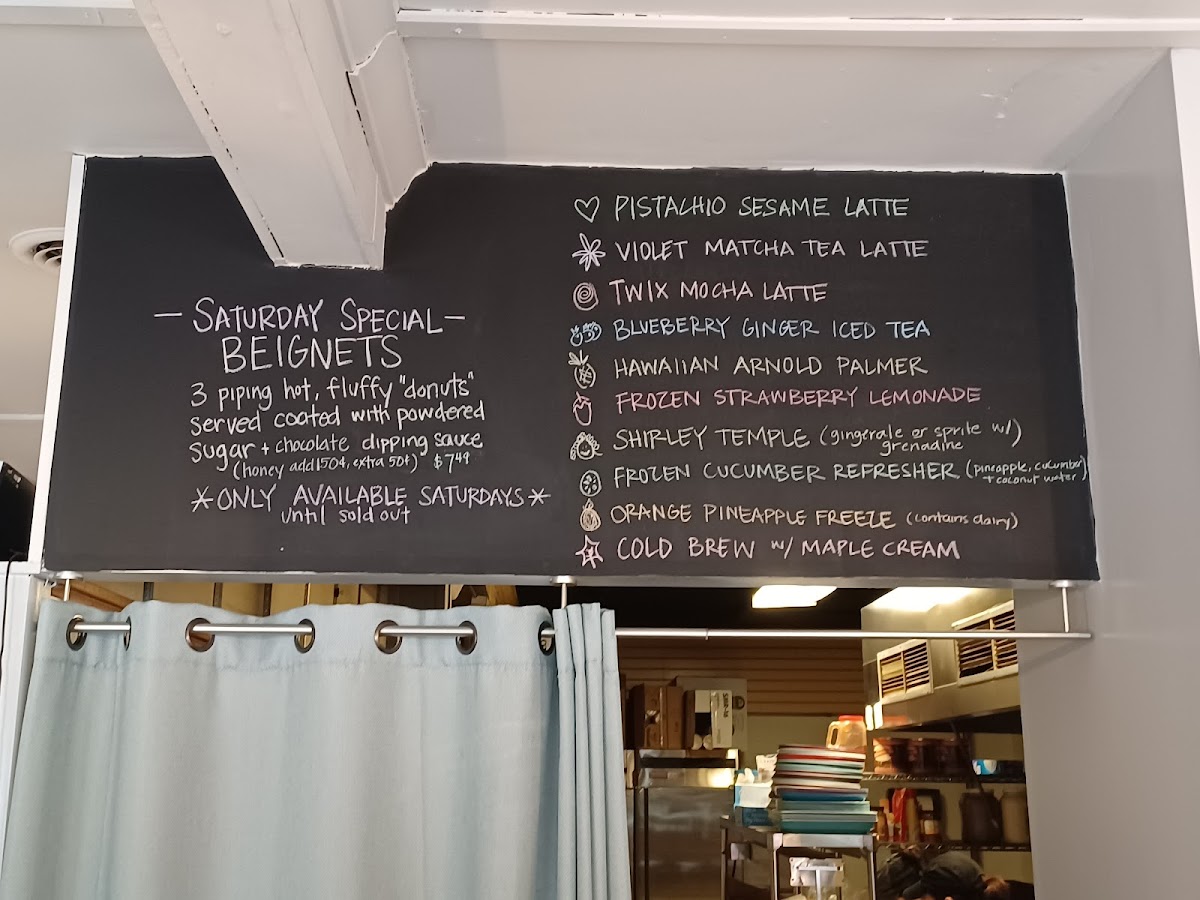 — SATURDAY SPECIAL —
BEIGNETS
3 piping hot, fluffy "donuts"
served coated with powdered
sugar + chocolate dipping sauce
(honey add 150¢, extra 50¢) $7.49
*ONLY AVAILABLE SATURDAYS*
until sold out
PISTACHIO SESAME LATTE
VIOLET MATCHA TEA LATTE
TWIX MOCHA LATTE
BLUEBERRY GINGER ICED TEA
HAWAIIAN ARNOLD PALMER
FROZEN STRAWBERRY LEMONADE
SHIRLEY TEMPLE (gingerale or sprite w/)
grenadine
FROZEN CUCUMBER REFRESHER (pineapple, cucumber
+ coconut water)
ORANGE PINEAPPLE FREEZE (contains dairy)
COLD BREW w/ MAPLE CREAM